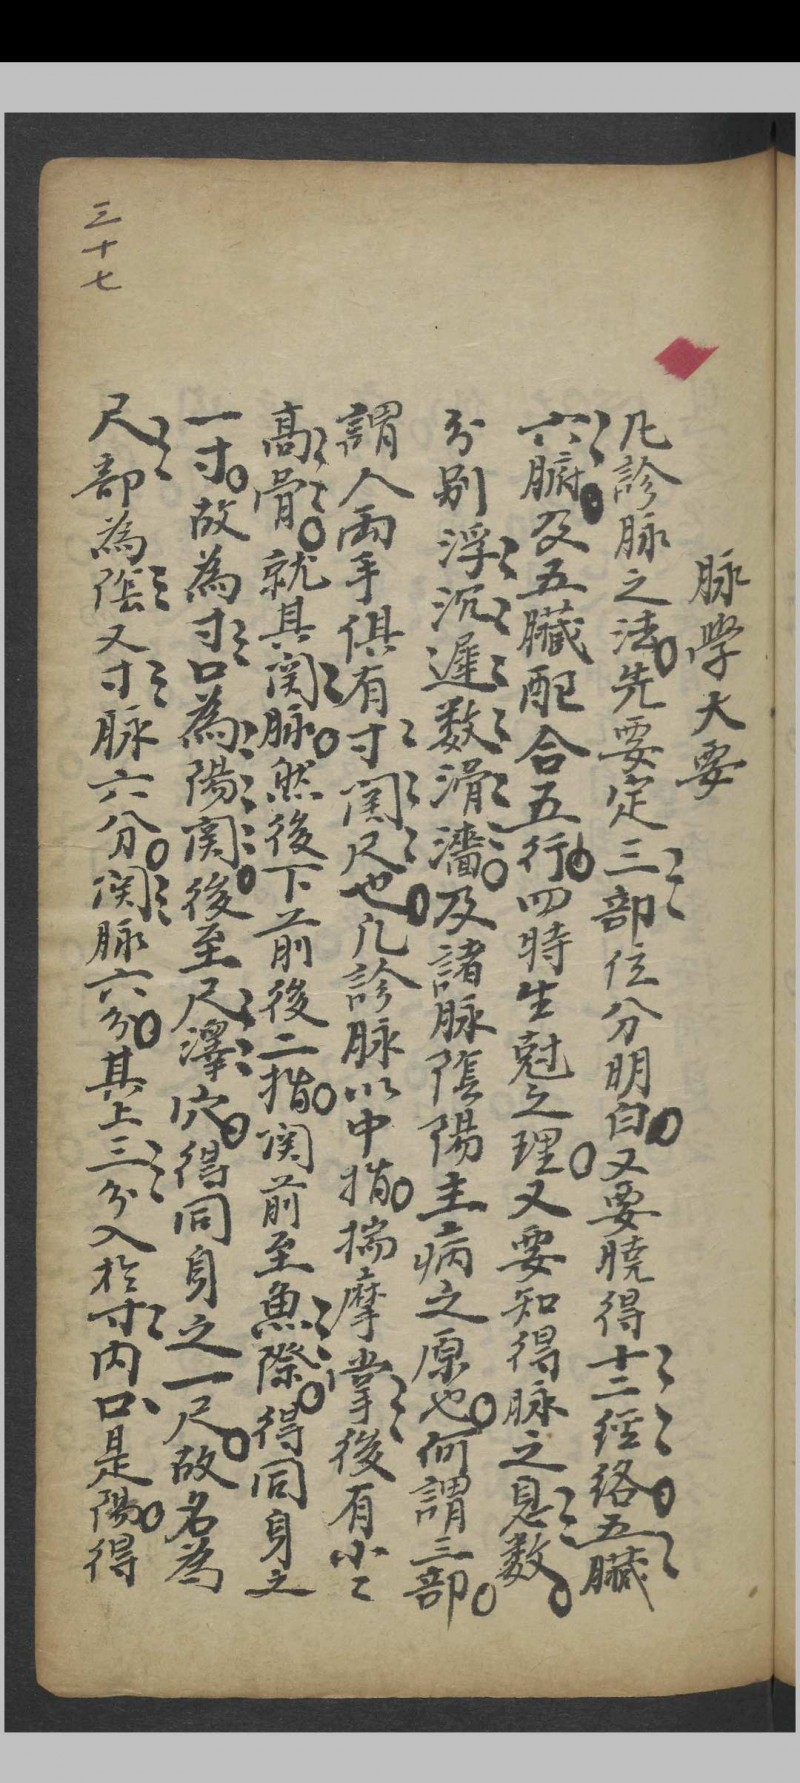 脉學大要
凡診脉之法先要定三部位分明白又要曉得十二經絡五臟
六腑及五臟配合五行四時生尅之理又要知得脉之息数
分别浮沉遲数滑濇及諸脉陰陽主病之原也何謂三部
謂人兩手俱有寸関尺也凡診脉以中指揣摩掌後有小〻
高骨就其関脉然後下前後二指関前至魚際得同身之
一寸故為寸口為陽関後至尺澤穴得同身之一尺故名為
尺部為陰又寸脉六分関脉六分其上三分入於寸内口是陽得
三十七